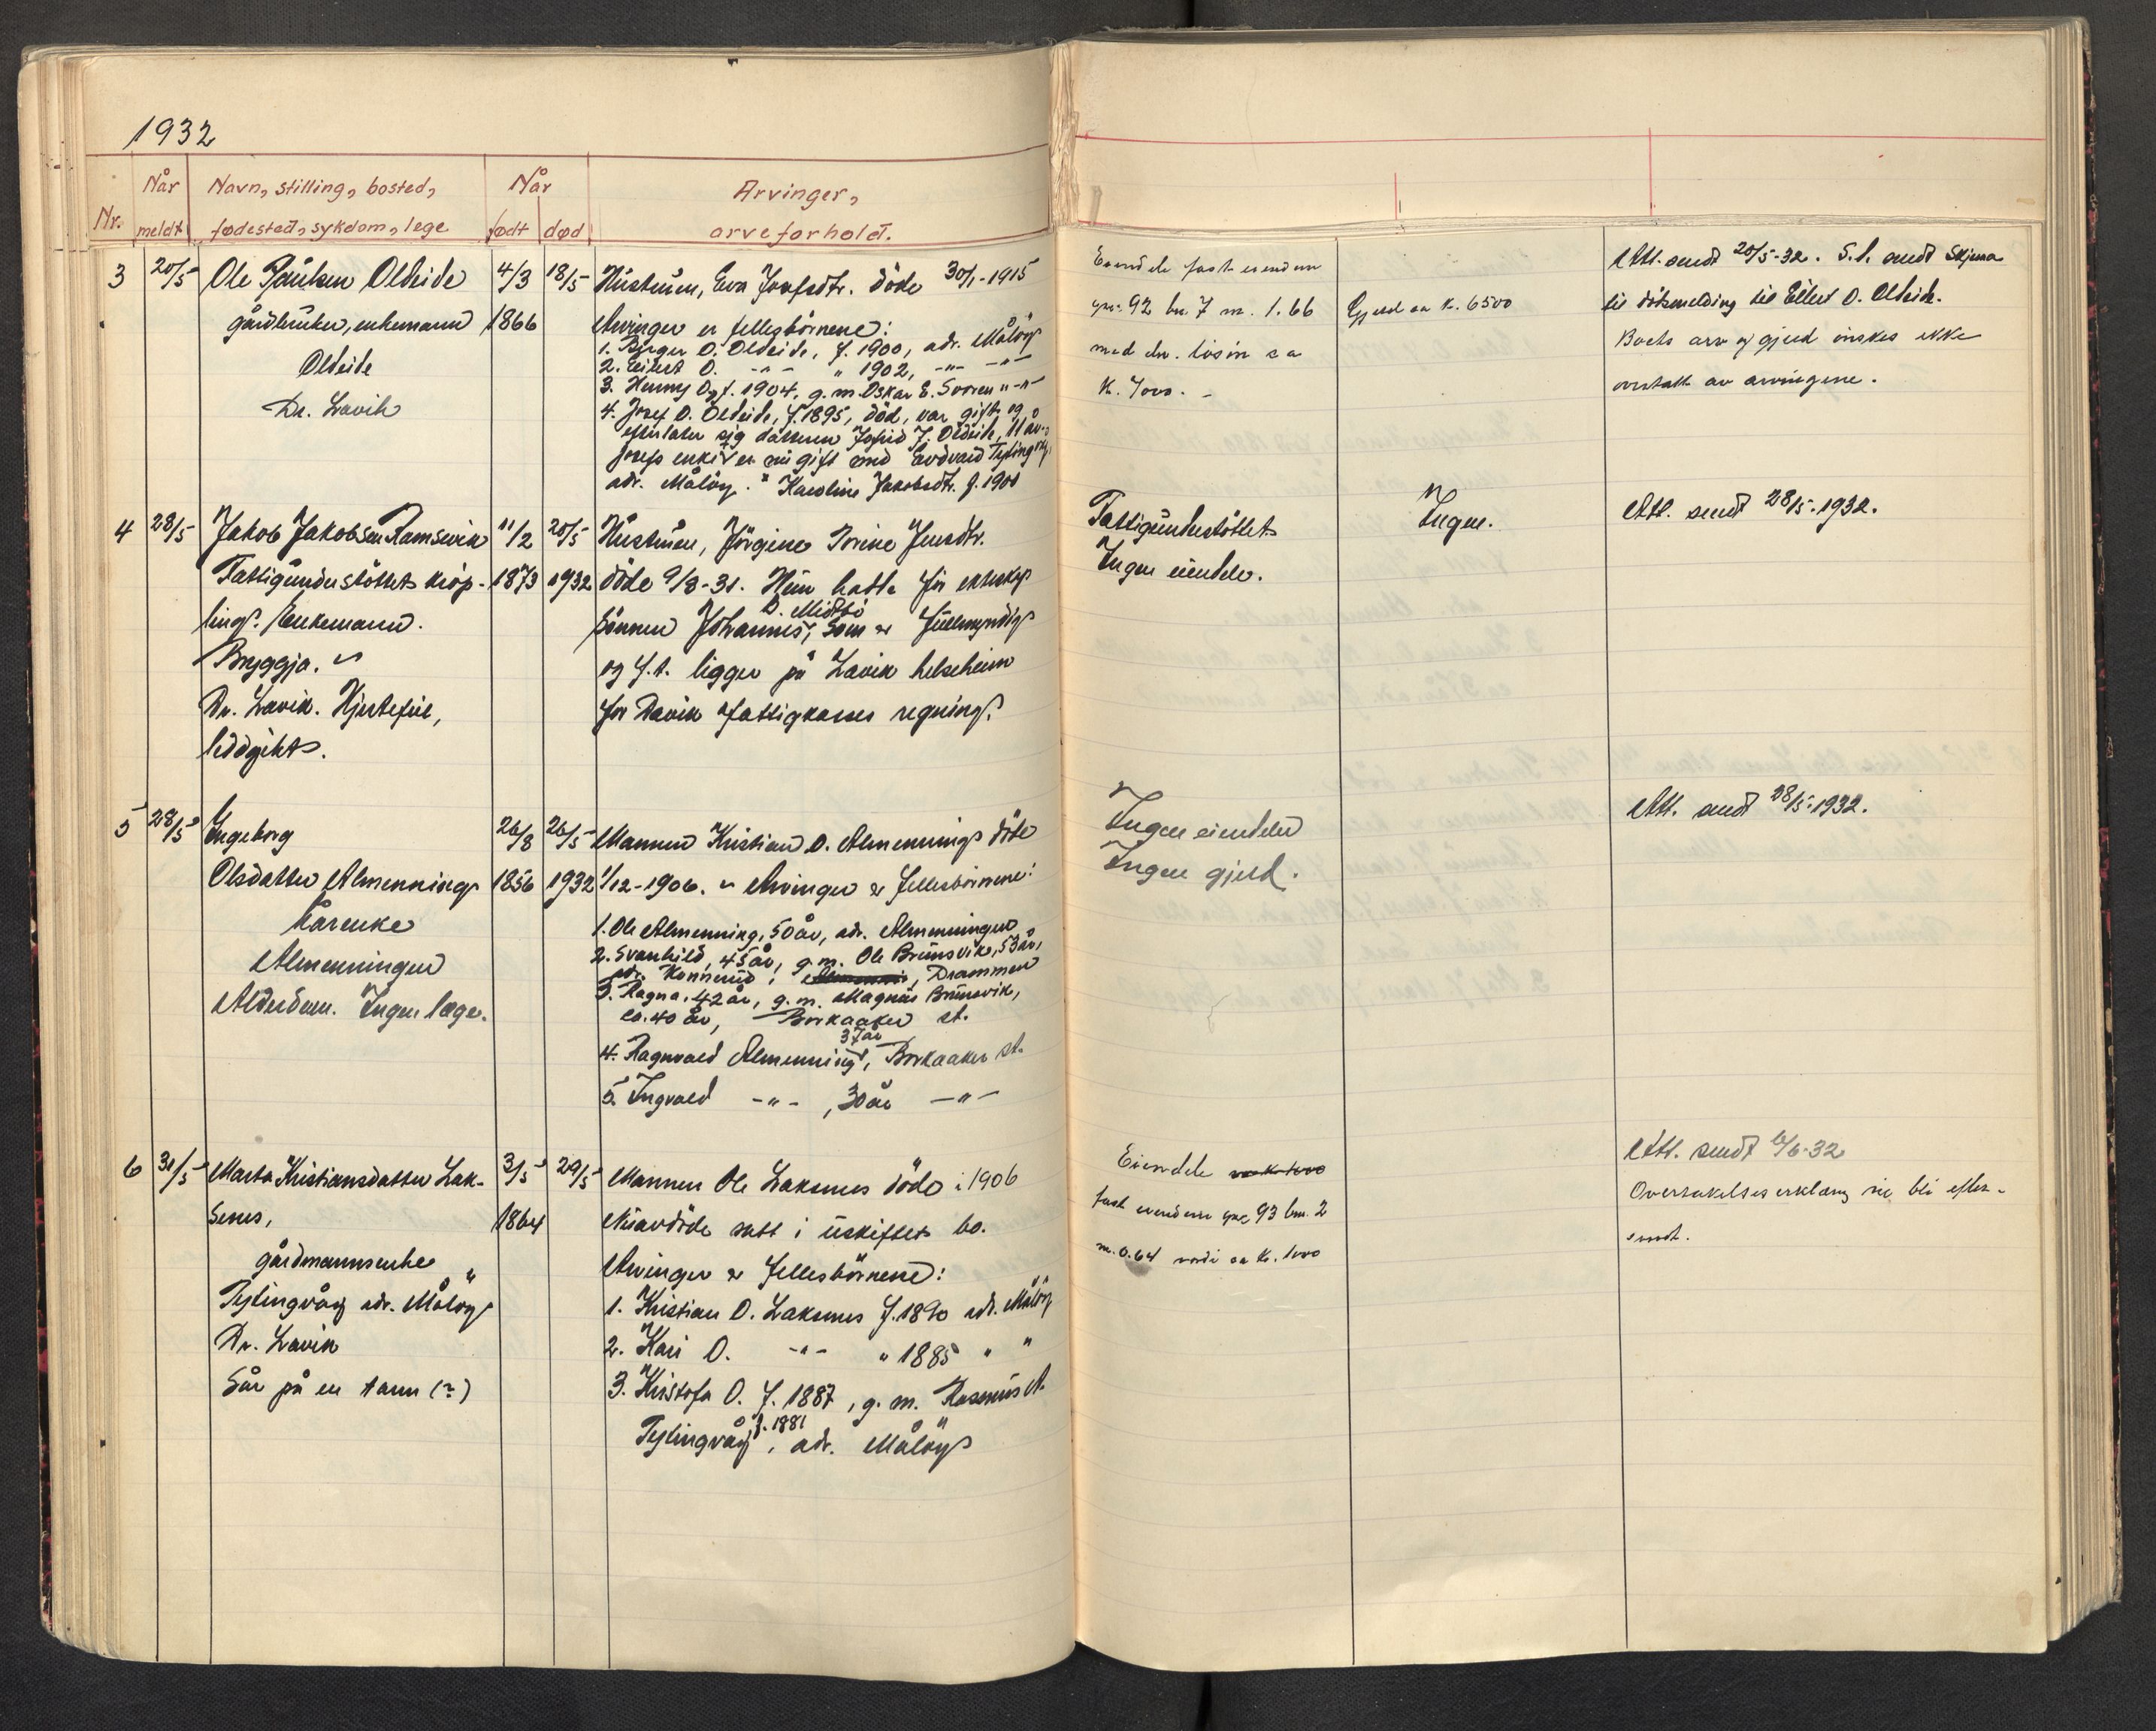 1932
Når
Navn, stilling, bosted,
Når
Arvinger,
Nr.
meldt
fødested, sykdom, lege
født
død
arveforhold.
3
20/5
Ole Paulsen Oldeide
gårdbruker, enkemann
Oldeide
Dr. Lavik
4/3
1866
18/5
Hustruen, Eva Josefsdtr. döde 30/1-1915
Arvinger er fellesbörnene:
1. Birger O. Oldeide, f. 1900, adr. Målöy
2. Eilert O. -"- " 1902, -"- -"-
3. Henny O. f. 1904, g.m. Oskar E. Svoren "-"-
4. Josef O. Oldeide, f. 1895, död, var gift og
efterlater sig datteren J. Oldeide, 11 år.
Josefs enke er nu gift med
adr. Målöy. Karoline Jakobsdtr. f. 1900
Eiendele fast eiendom
gnr. 92 bn. 7 m. 1.66
med div. lösöre ca
K. 7000. -
Gjeld ca K. 6500
Att. sendt 20/5-32. S.d. sendt Skjema
til dödsmelding til Eilert O. Oldeide.
Boets arv og gjeld önskes ikke
overtatt av arvingene.
4
28/5
Jakob Jakobsen Ramsevik
Fattigunderstöttet kröp-
ling. Enkemann.
Bryggja.
Dr. Lavik. Hjertefeil,
leddgikt.
11/2
1873
20/5
1932
Hustruen, Jörgine Jensdtr.
döde 9/8-31. Hun hadde för ekteskap
D. Midtbö
sönnen Johannes, som er fullmyndig
og f.t. ligger på Lavik helseheim
for Davik fattigkasses regning.
Fattigunderstöttet
Ingen eiendeler.
Ingen.
Att. sendt 28/5-1932.
5
28/5
Ingeborg
Olsdatter Almenning
kårenke
Almenningen
Alderdom. Ingen læge.
26/8
1856
26/5
1932
Mannen Kristian O. Almenning döde
1/12-1906. Arvinger er fellesbörnene:
1. Ole Almenning, 50 år, adr. Almenningen
2. Svanhild, 45 år, g.m. Ole Brunsvik, 53 år,
adr. Konnerud, Drammen
3. Ragna, 42 år, g.m. Magnus Brunsvik,
ca. 40 år, Borkaaker st.
37 år
4. Ragnvald Almenning, Borkaaker st.
5. Ingvald -"-, 30 år -"-
Ingen eiendeler
Ingen gjeld.
Att. sendt 28/5-1932.
6
31/5
Marta Kristiansdatter Lak-
senes,
gårdmannsenke
Tytingvåg adr. Målöy
Dr. Lavik
Sår på en tann (?)
3/5
1864
29/5
Mannen Ole Laksenes döde i 1906
Nuavdöde satt i uskiftet bo.
Arvinger er fellesbörnene:
1. Kristian O. Laksenes f. 1890 adr. Målöy
2. Kari O. -"- " 1885 " "
3. Kristofa O. f. 1887, g.m. Rasmus A.
Tytingvåg f. 1881, adr. Målöy
Eiendele
fast eiendom gnr. 93 bn. 2
m. 0.64 verdi ca K. 1000
Att. sendt 6/6-32
Overtakelseserklæring vil bli efter-
sendt.